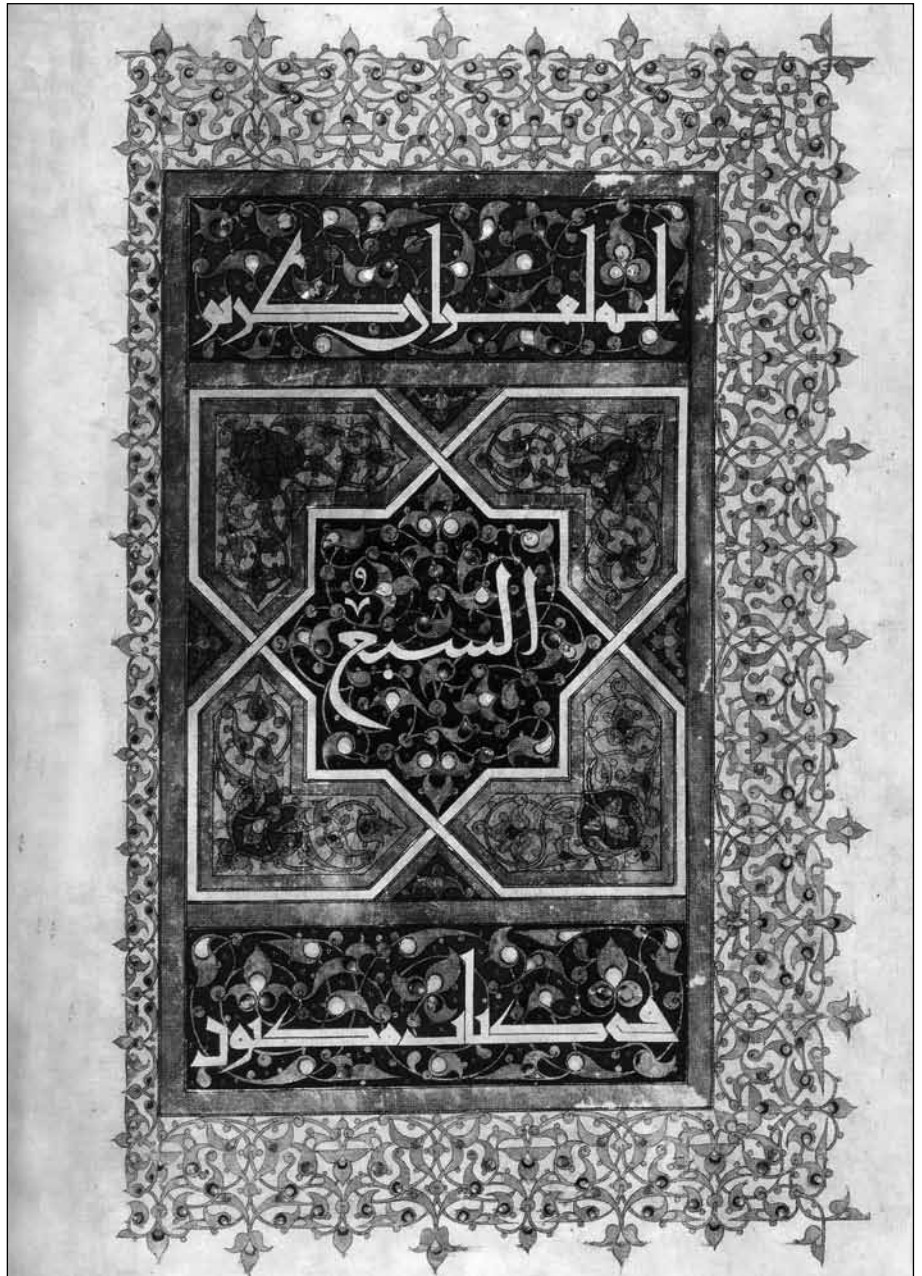 انه لقران كريم
السبع
في كتاب مكنون